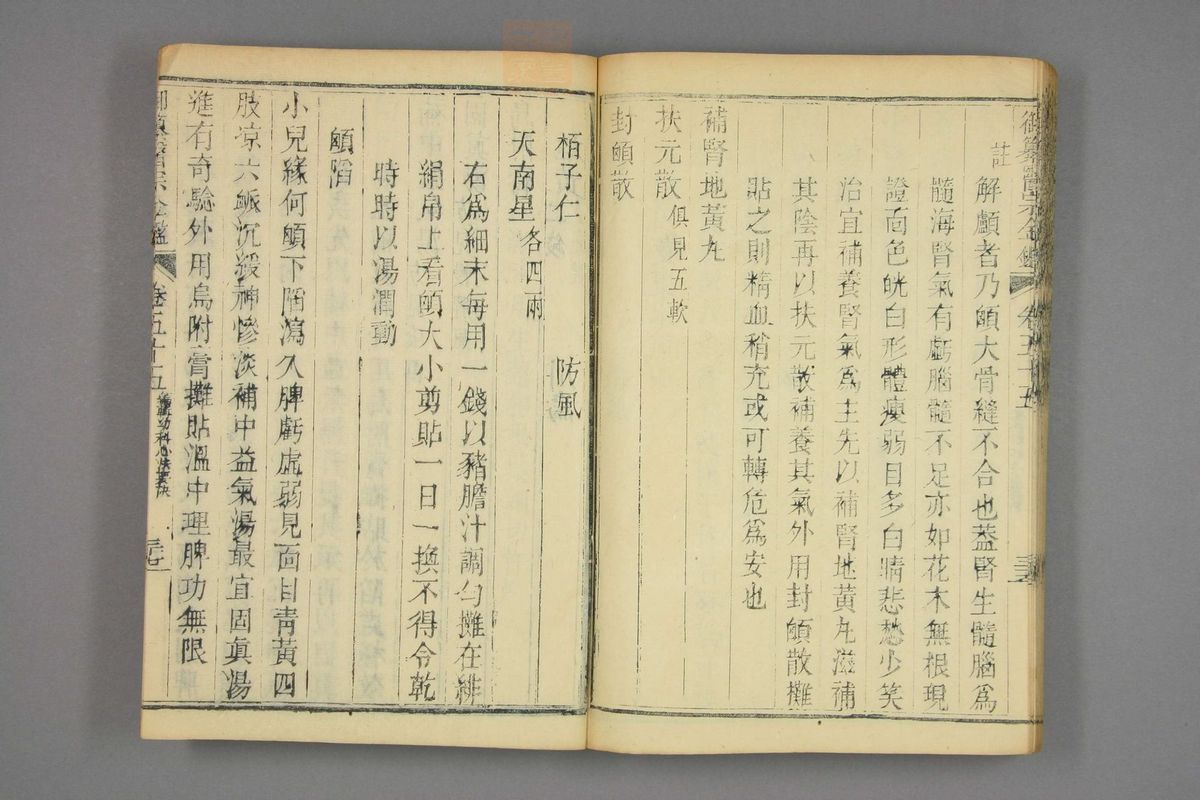 御纂醫宗金鑑 卷五十五
註
解顱者乃頤大骨縫不合也蓋腎生髓腦爲
髓海腎氣有虧腦髓不足亦如花木無根現
證面色㿠白形體瘦弱目多白睛悲愁少笑
治宜補養腎氣爲主先以補腎地黃丸滋補
其陰再以扶元散補養其氣外用封顖散攤
貼之則精血稍充或可轉危爲安也
補腎地黃丸
扶元散 俱見五軟
封顖散
栢子仁 防風
天南星 各四兩
右爲細末每用一錢以豬膽汁調勻攤在緋
絹帛上看顖大小剪貼一日一換不得令乾
時時以湯潤動
顖陷
小兒緣何顖下陷瀉久脾虧虛弱見面目青黃四
肢凉六脈沉緩神慘淡補中益氣湯最宜固眞湯
進有奇驗外用烏附膏攤貼溫中理脾功無限
御纂醫宗金鑑 卷五十五 編輯幼科心法要訣